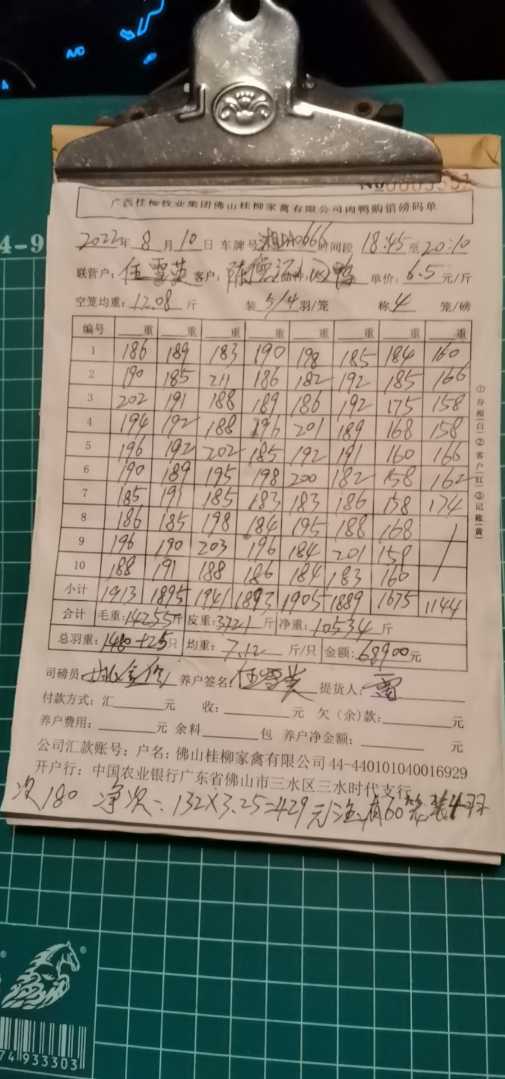 A/C
4-9
No 0003332
广西桂柳牧业集团佛山桂柳家禽有限公司肉鸭购销磅码单
2022年 8 月 10 日 车牌号 时间段 18:45至20:10
联营户: 任雪英 客户: 单价: 6.5 元/斤
空笼均重: 12.08 斤 装 5/4 羽/笼 称 4 笼/磅
编号 重 重 重 重 重 重 重 重
1 186 189 183 190 198 185 184 160
2 190 185 211 186 182 192 185 166
3 202 191 188 189 186 192 175 158
4 194 192 188 196 201 189 168 158
5 196 192 202 185 192 191 160 166
6 190 189 195 198 200 182 158 162
7 185 191 185 183 183 186 158 174
8 186 185 198 184 195 188 168
9 196 190 203 196 184 201 159
10 188 191 188 186 184 183 160
小计 1913 1895 1941 1893 1905 1889 1675 1144
合计 毛重: 14255斤 皮重: 3721斤 净重: 10534 斤
总羽重: 1480 只 均重: 7.12 斤/只 金额: 68900元
司磅员: 养户签名: 任雪英 提货人: 雷
付款方式: 汇 元 收: 元 欠(余)款: 元
养户费用: 元 余料 包 养户净金额: 元
公司汇款账号: 户名: 佛山桂柳家禽有限公司 44-440101040016929
开户行: 中国农业银行广东省佛山市三水区三水时代支行
次180 净次: 132×3.25=429元 注:有60笼装4羽
①存根(白)②客户(红)③记账(黄)
74 933303